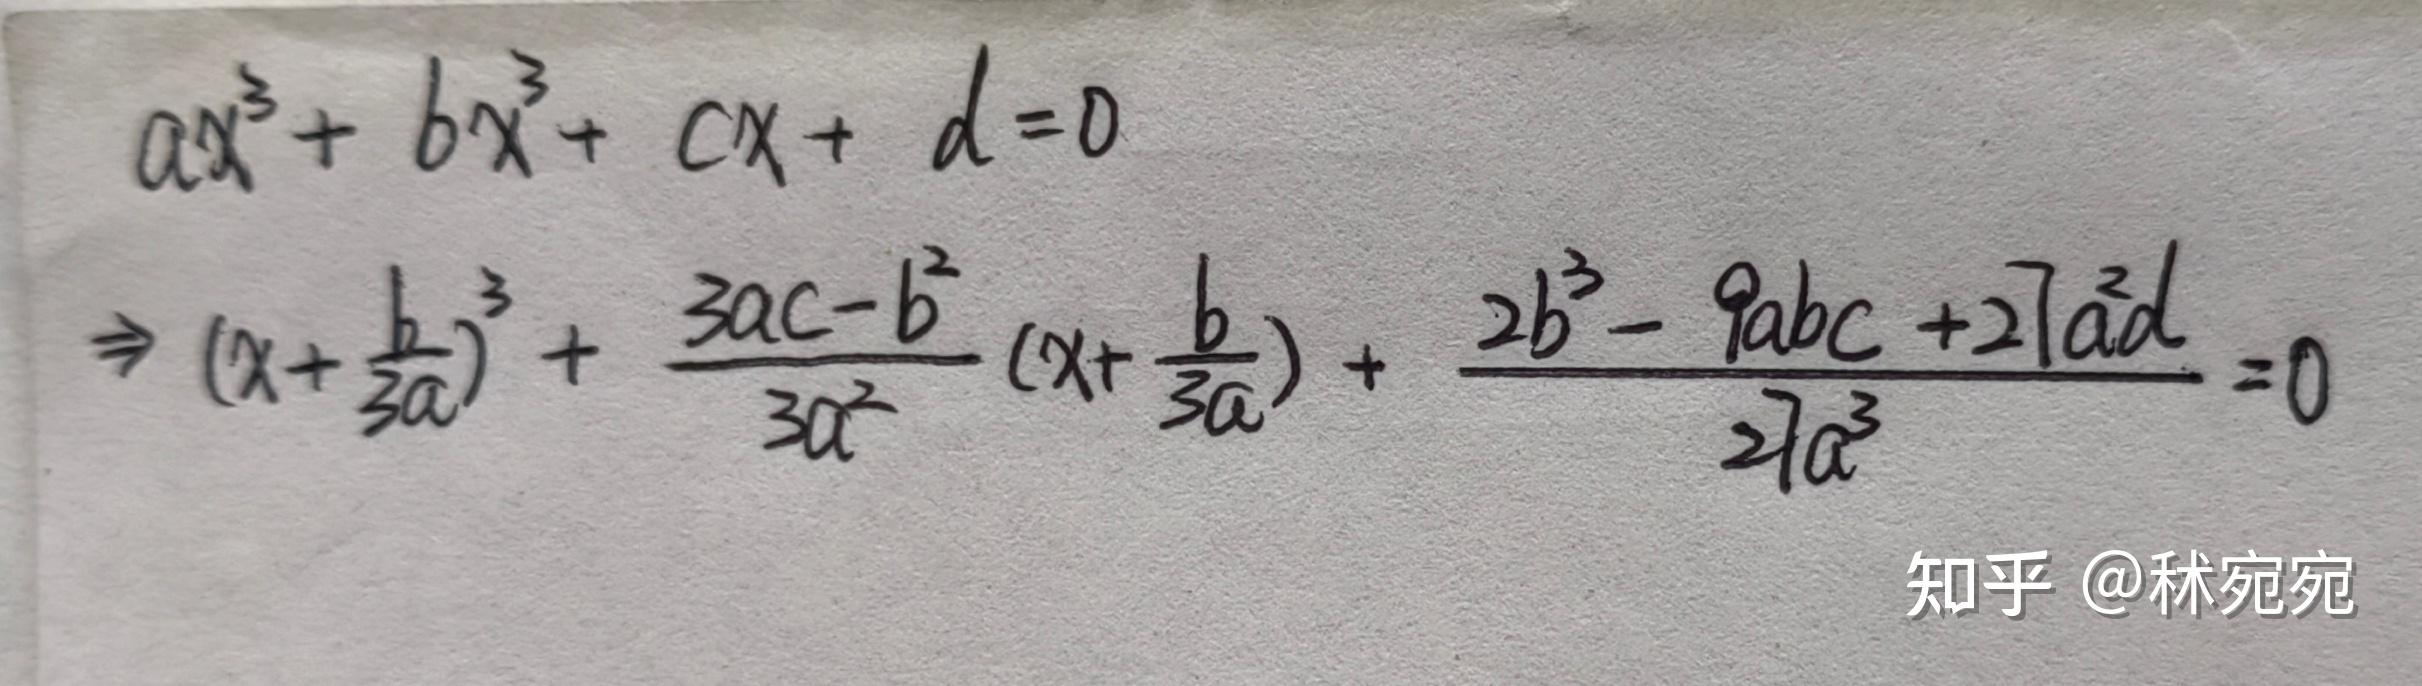 ax³ + bx³ + cx + d = 0
⇒ (x + b/3a)³ + (3ac - b²)/3a² (x + b/3a) + (2b³ - 9abc + 27a²d)/27a³ = 0
知乎 @秫宛宛